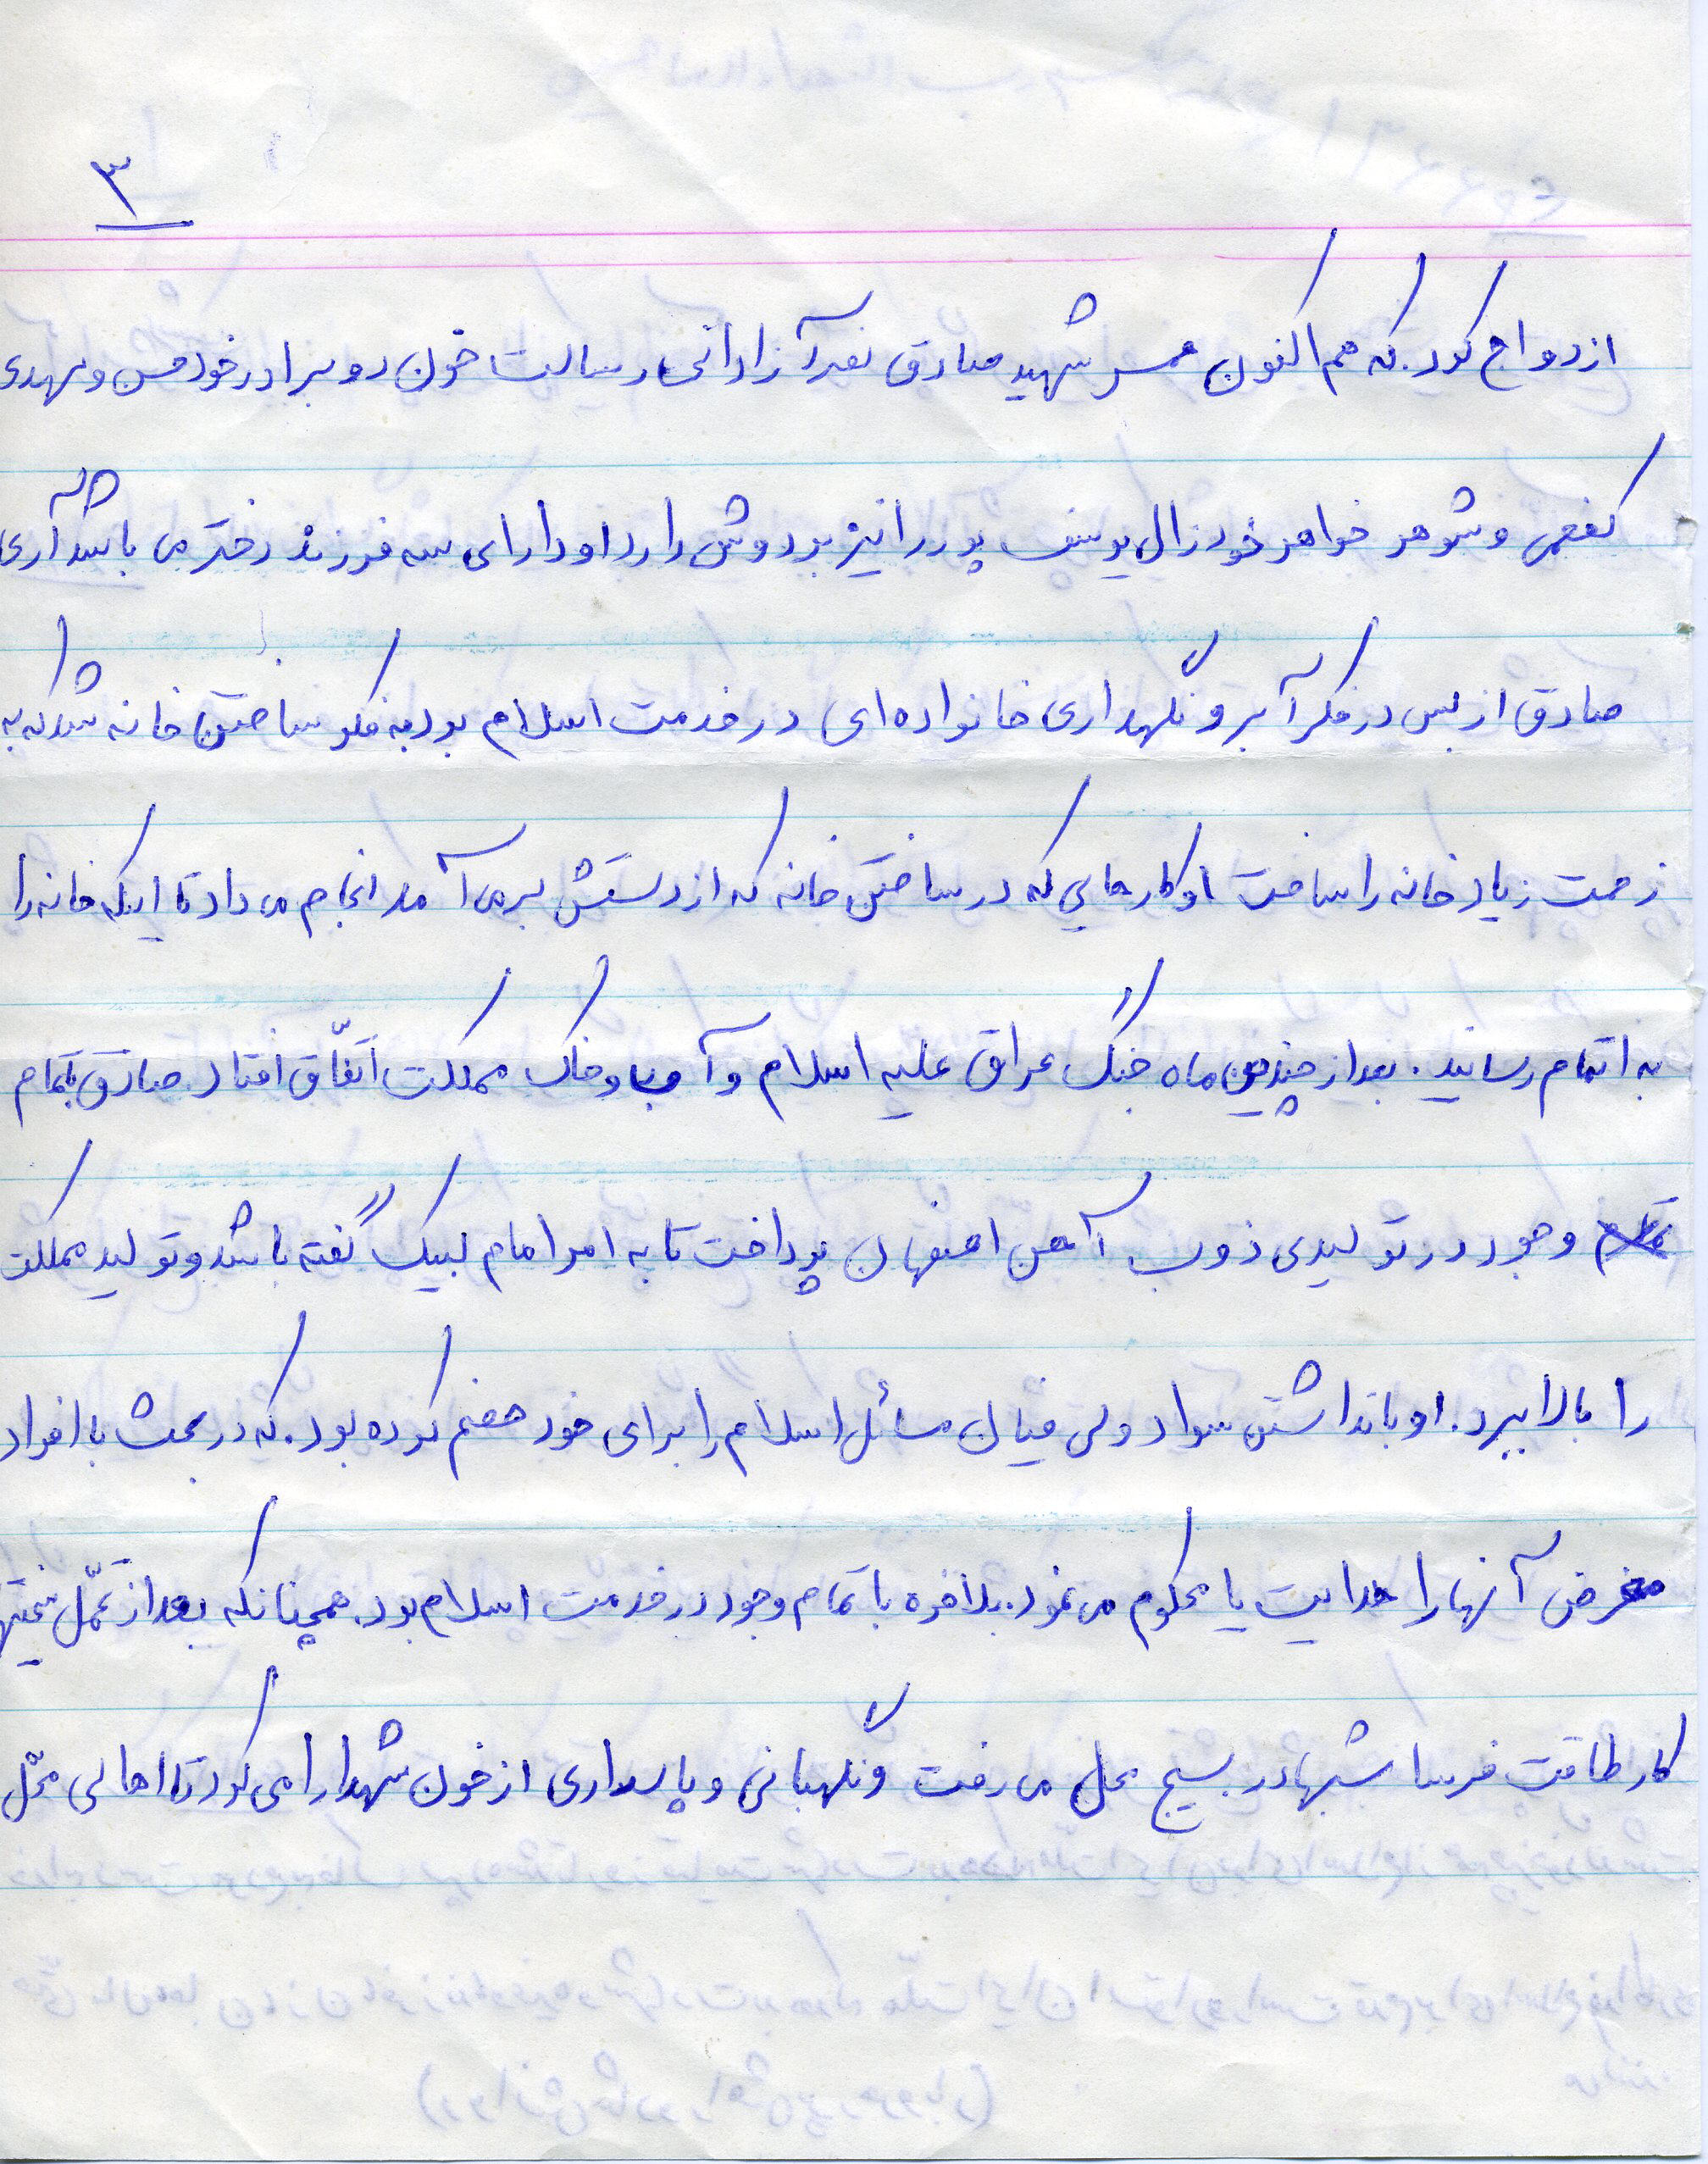 ۳
ازدواج کرد. که هم اکنون همسر شهید صادق نصر آزادانی رسالت خون دو برادر خود حسن و مهدی
کفعمی و شوهر خواهر خود زال یوسف پور را نیز بر دوش دارد او دارای سه فرزند دختر می باشد آری
صادق از بس در فکر آبرو نگهداری خانواده ای در خدمت اسلام بود به فکر ساختن خانه شد که به
زحمت زیاد خانه را ساخت او کارهایی که در ساختن خانه که از دستش برمی آمد انجام می داد تا اینکه خانه را
به اتمام رسانید. بعد از چندین ماه جنگ عراق علیه اسلام و آب و خاک مملکت اتّفاق افتاد. صادق بتمام
وجود در تولیدی ذوب آهن اصفهان پرداخت تا به امر امام لبیک گفته باشد و تولید مملکت
را بالا ببرد. او با نداشتن سواد ولی چنان مسائل اسلام را برای خود هضم کرده بود. که در بحث با افراد
مغرض آنها را هدایت یا محکوم می نمود. بلاخره با تمام وجود در خدمت اسلام بود. همچنانکه بعد از تحمّل سختیها
کار طاقت فرسا شبها در بسیج محل می رفت و نگهبانی و پاسداری از خون شهدا را می کرد تا اهالی محّل